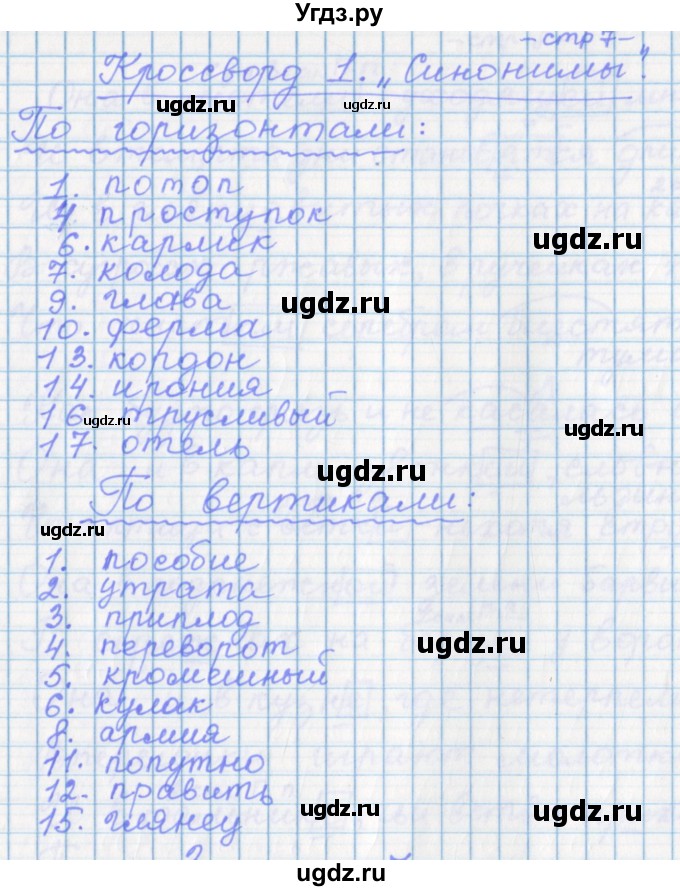 Угдз.ру
- стр 7 -
Кроссворд 1. „Синонимы".
ugdz.ru
ugdz.ru
По горизонтали:
1. потоп
4. проступок
6. карлик
ugdz.ru
7. колода
9. глава
ugdz.ru
10. ферма
13. кордон
14. ирония
16. трусливый
ugdz.ru
ugdz.ru
17. отель
ugdz.ru
По вертикали:
ugdz.ru
1. пособие
2. утрата
3. приплод
4. переворот
ugdz.ru
5. кромешный
6. кулак
8. армия
11. попутно
12. править
ugdz.ru
ugdz.ru
15. глянец
ugdz.ru